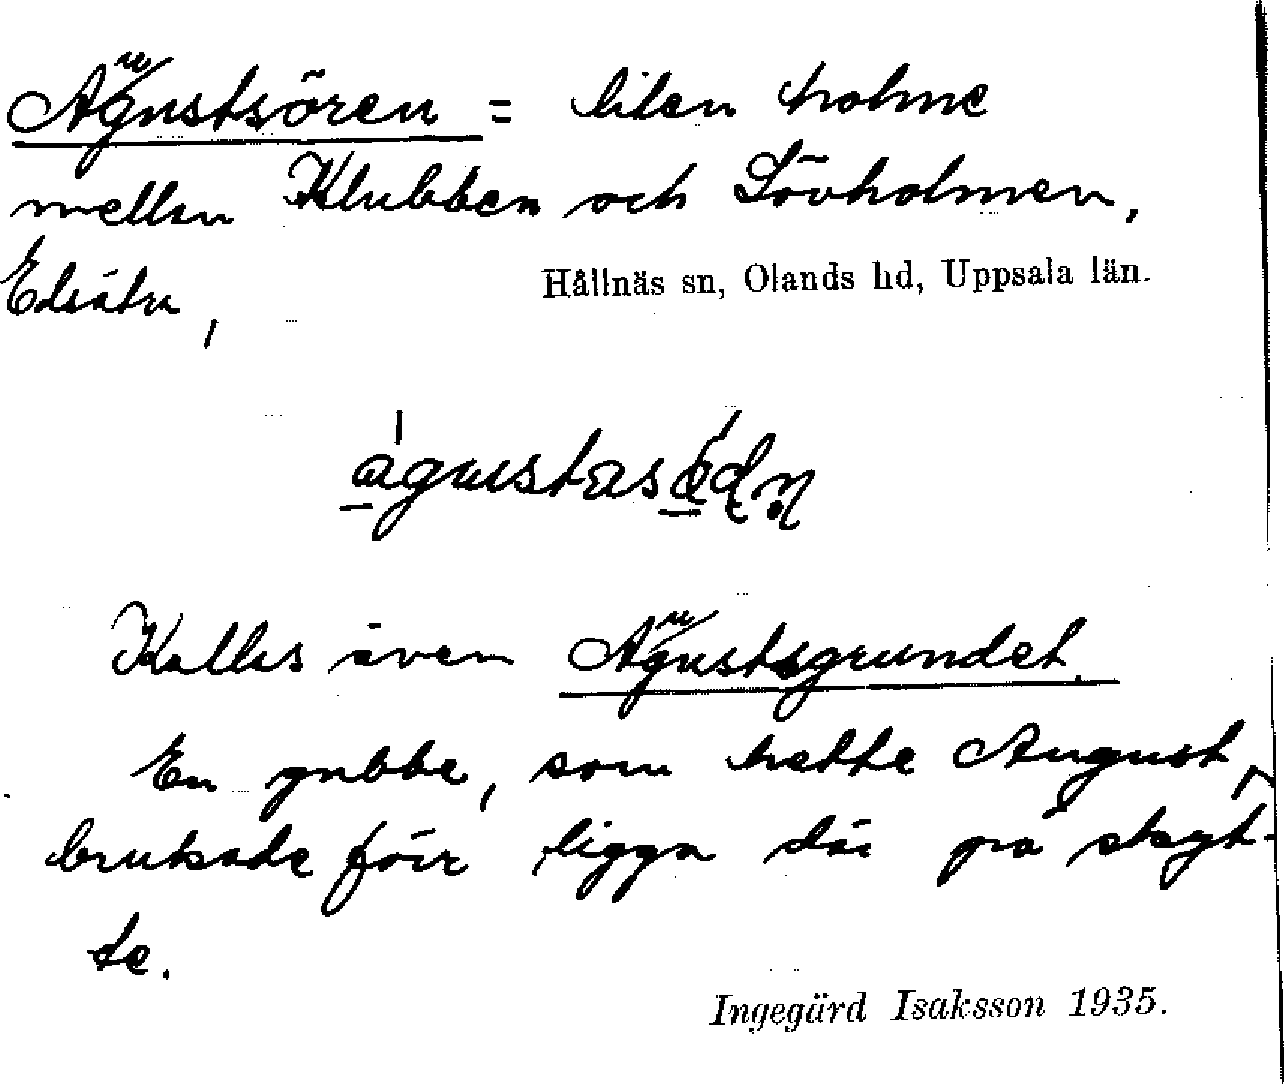 Augustsören = liten holme
mellan Klubben och Lövholmen,
Edsätra,
Hållnäs sn, Olands hd, Uppsala län.
Kallas även Augustsgrundet.
En gubbe, som hette August,
brukade förr ligga där på skyt-
te.
Ingegärd Isaksson 1935.